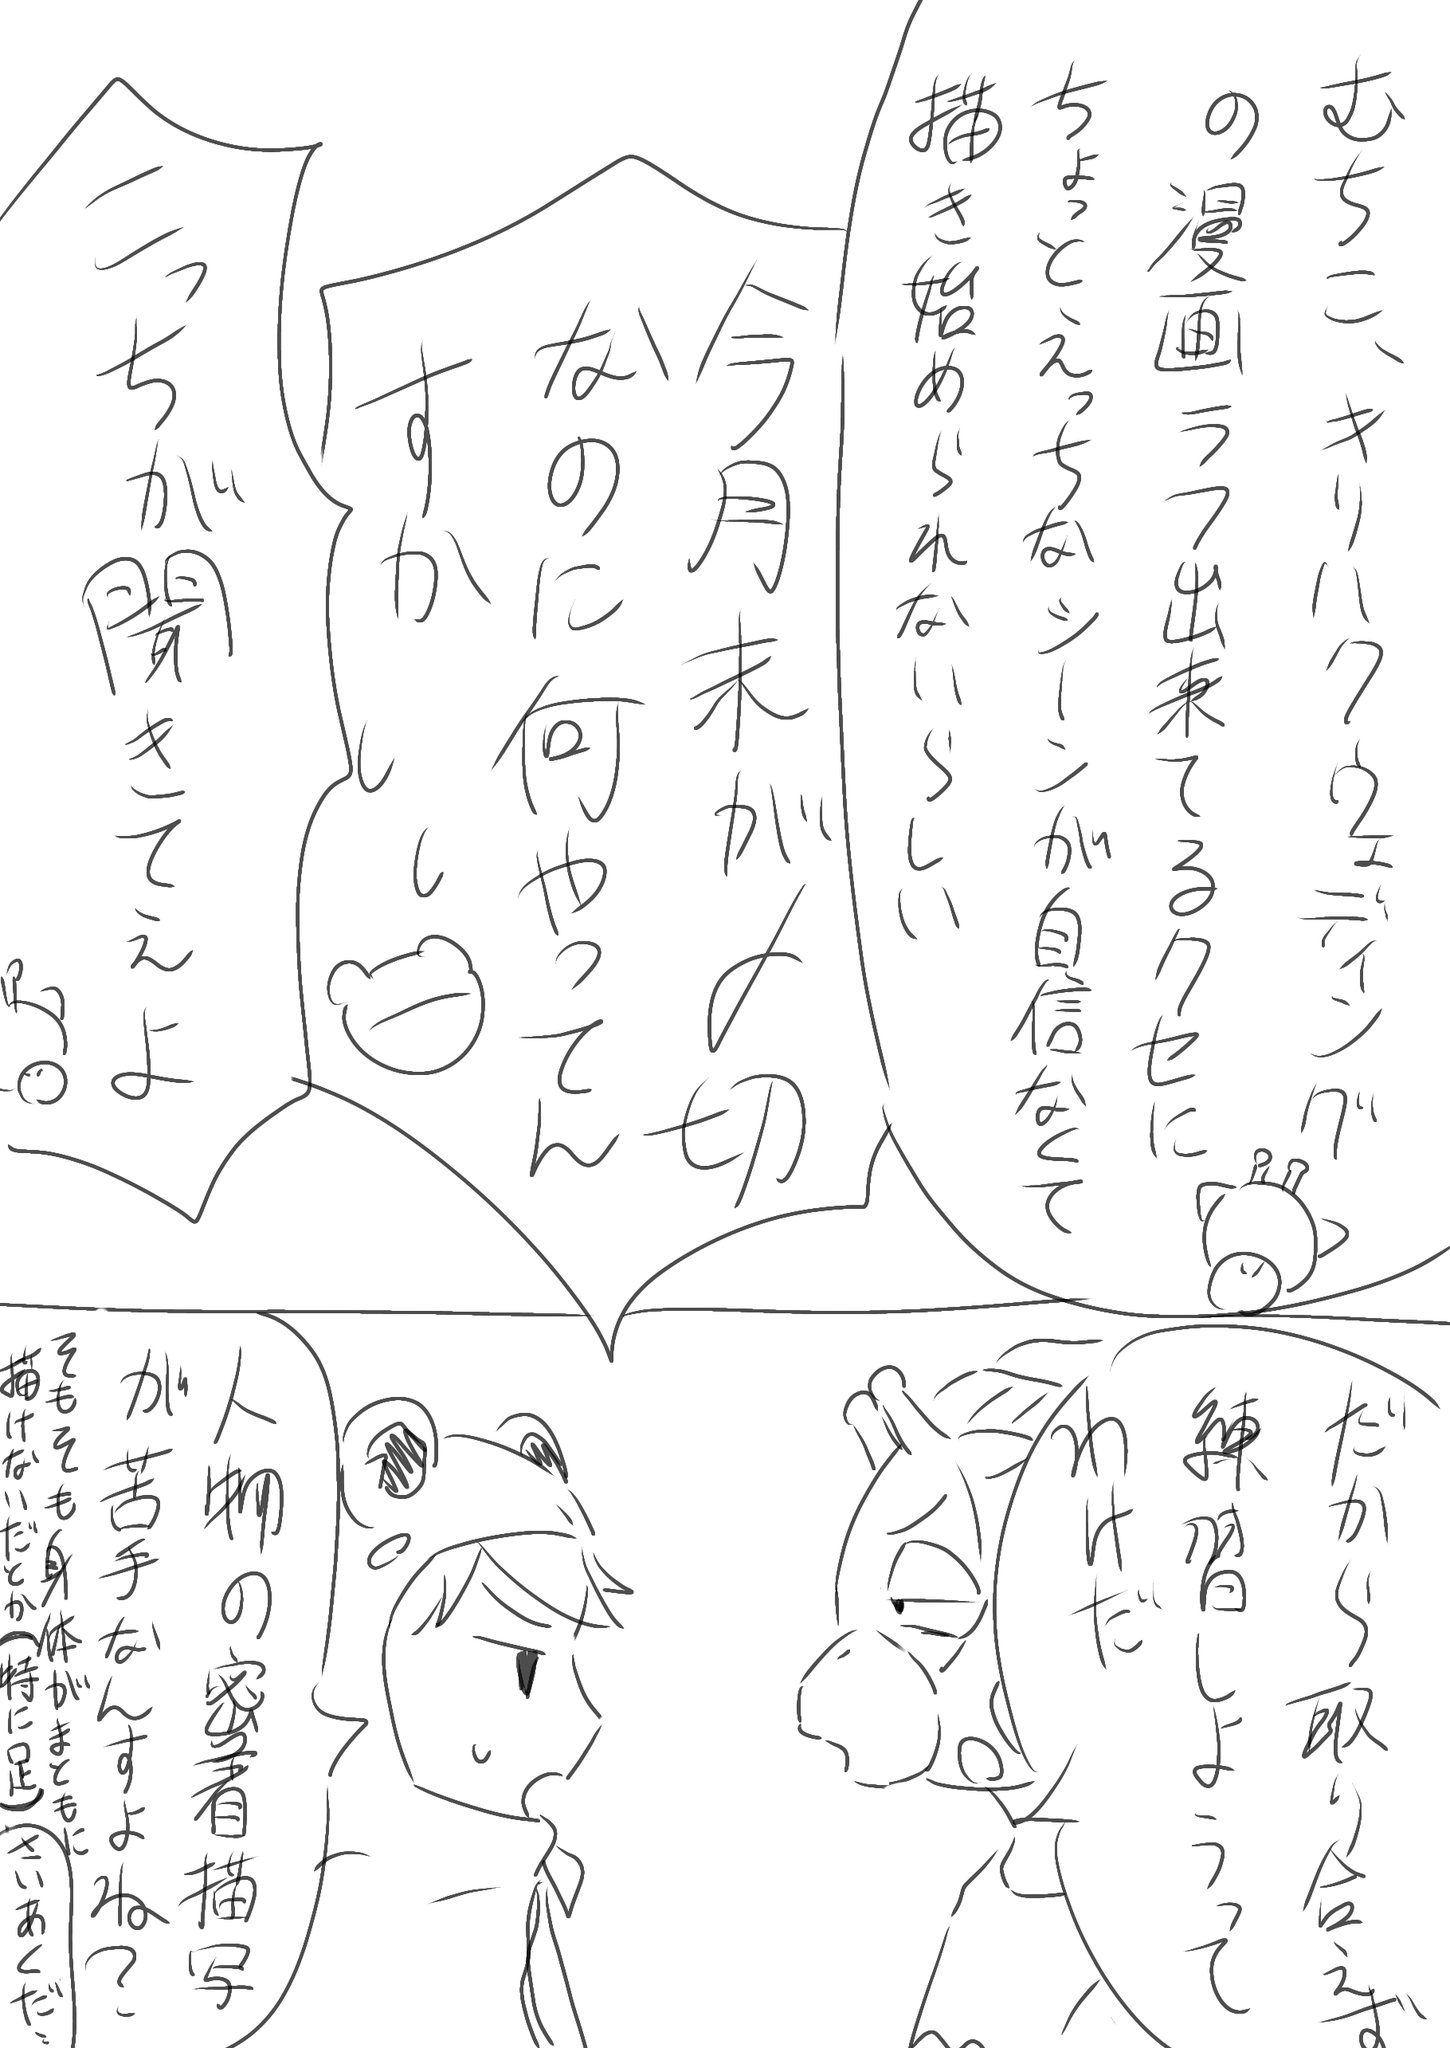 むちこ、キリハクウェディング
の漫画ラフ出来てるクセに
ちょっとえっちなシーンが自信なくて
描き始められないらしい
今月末が〆切
なのに何やってん
すか
こっちが聞きてぇよ
だから取り合えず
練習しようって
わけだ
人物の密着描写
が苦手なんすよね?
そもそも身体がまともに
描けないだとか(特に足)
さいあくだ…